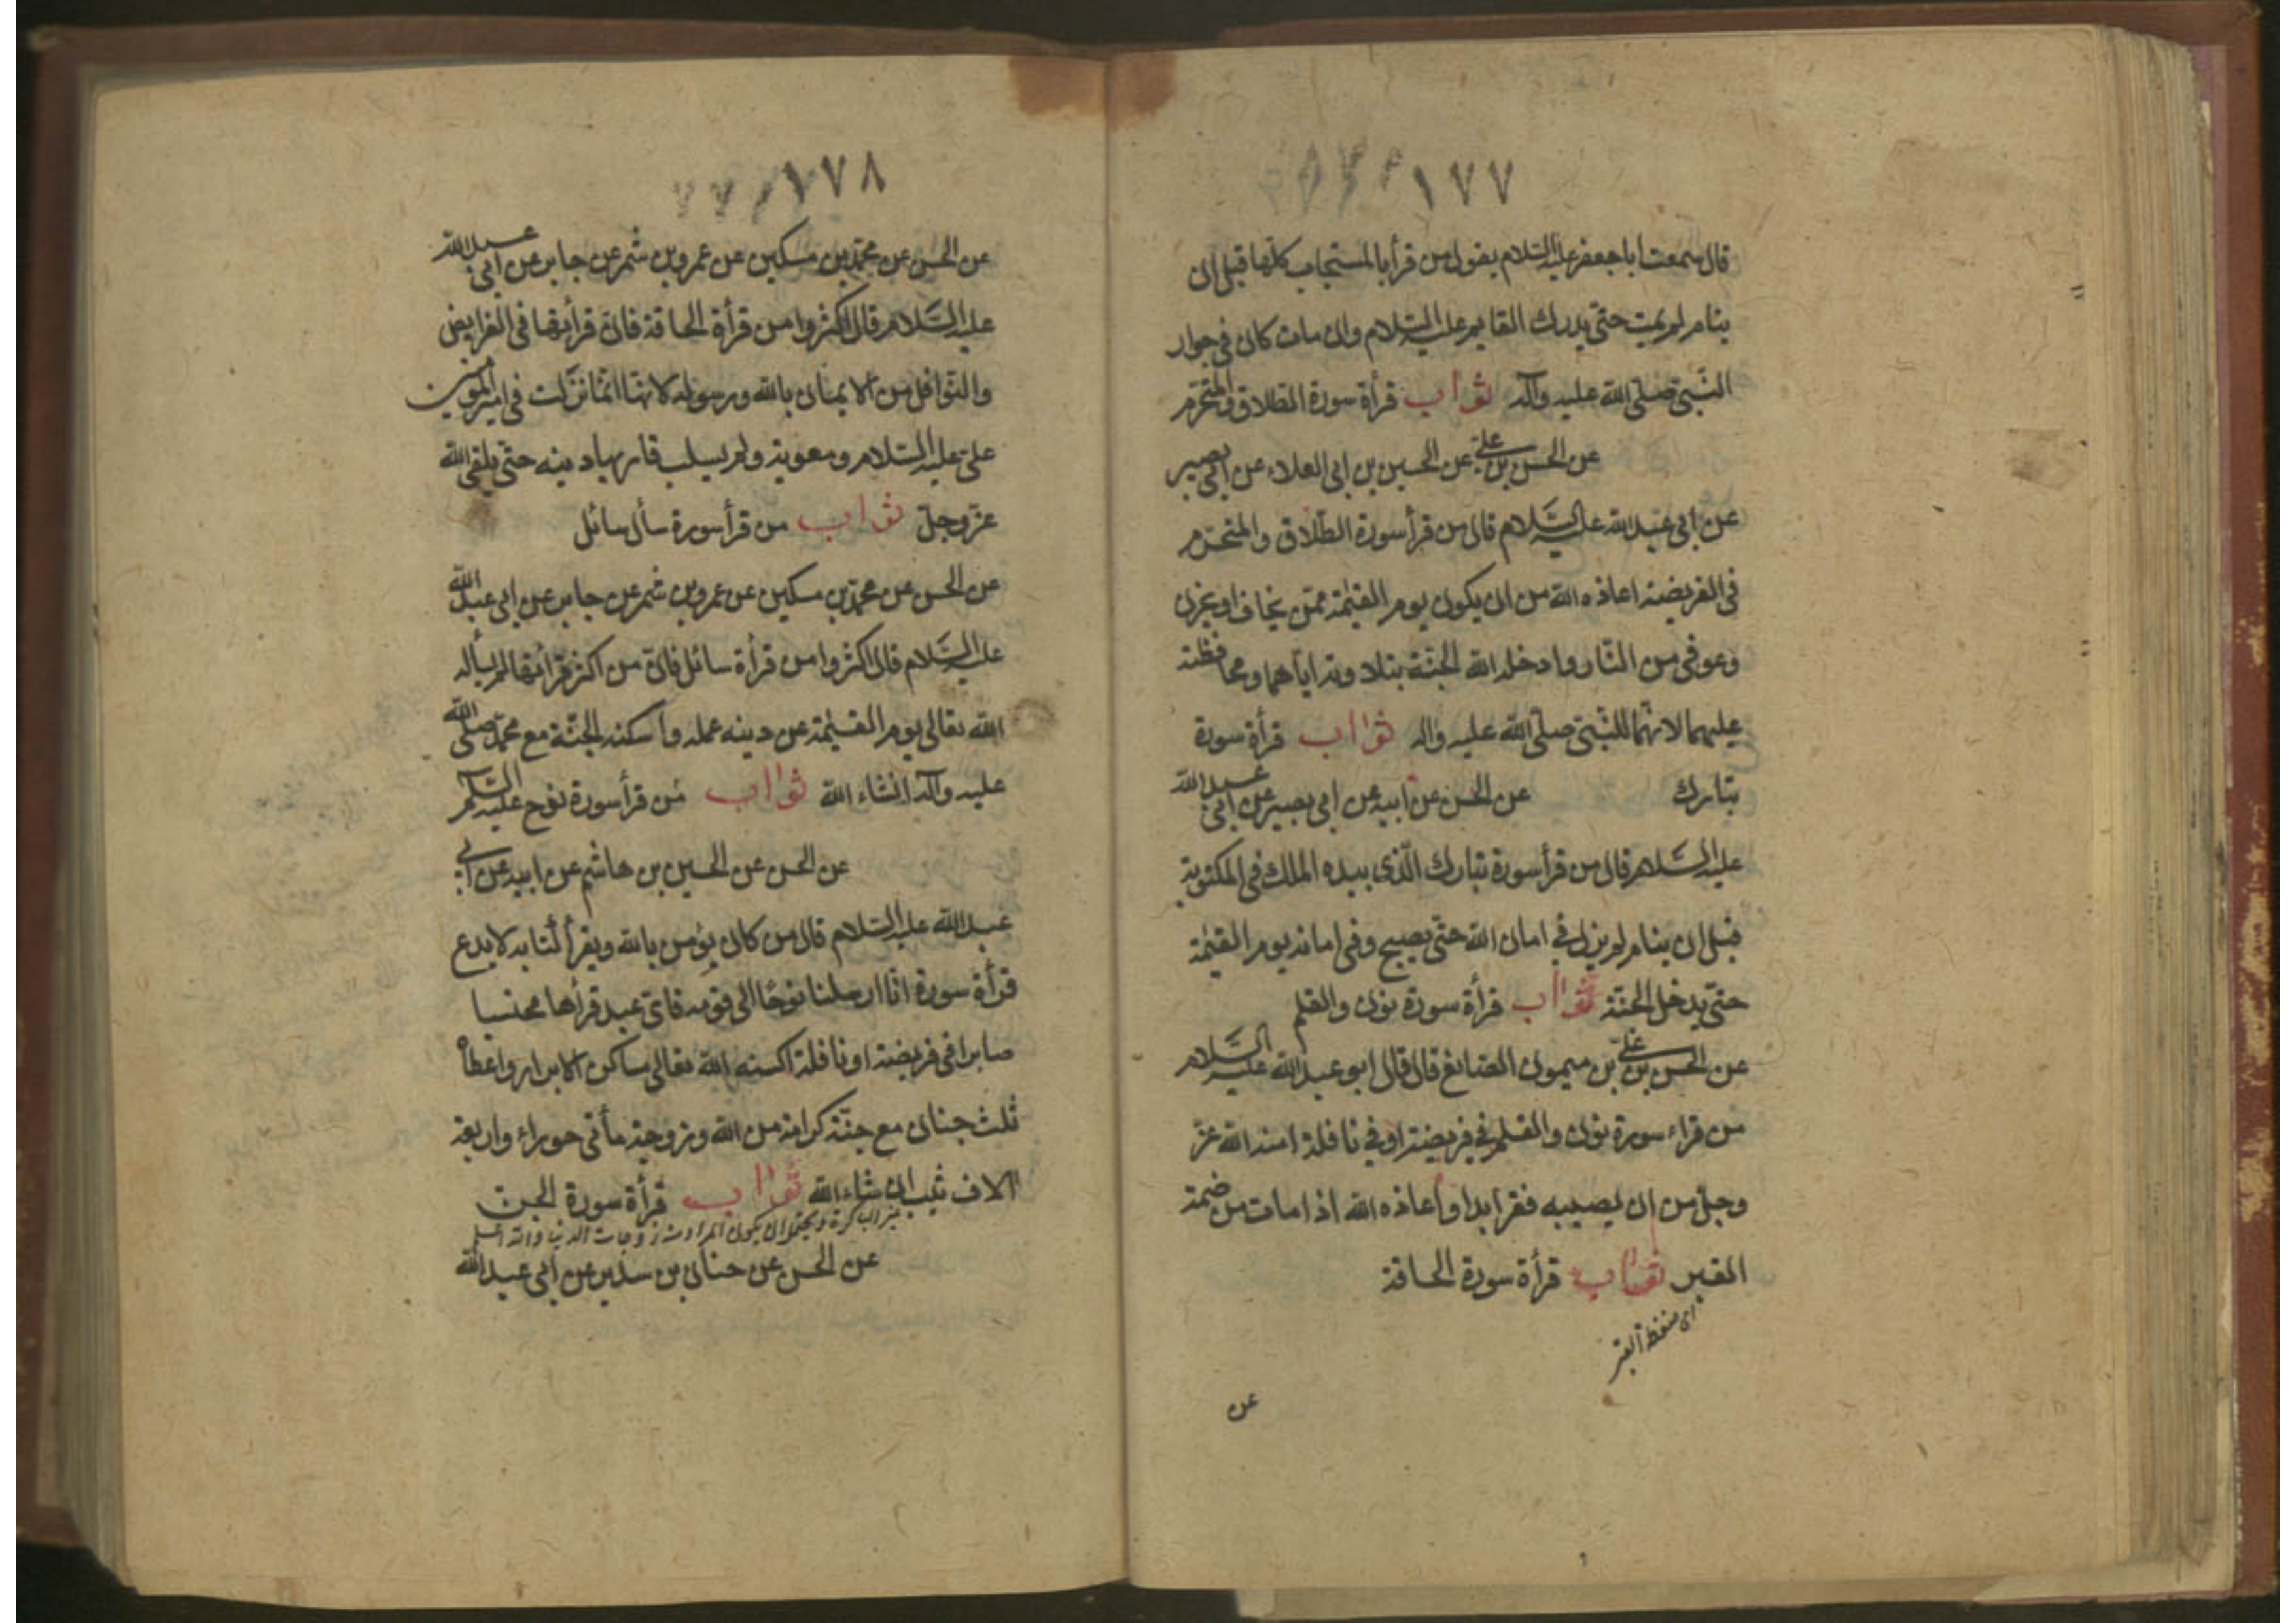 ١٧٧
قال سمعت ابا جعفر عليه السلام يقول من قرأ بالمستجاب كلها قبل ان
ينام لم يمت حتى يدرك القايم عليه السلام وان مات كان في جوار
النبي صلى الله عليه وآله ثواب قرأة سورة الطلاق والتحرم
عن الحسن بن على عن الحسين بن ابى العلاء عن ابى بصير
عن ابى عبد الله عليه السلام قال من قرأ سورة الطلاق والتحرم
في الفريضة اعاذه الله من ان يكون يوم القيمة ممن يخاف او يحزن
وعوفى من النار وادخله الله الجنة بتلاوته اياهما ومحافظته
عليهما لانهما للنبى صلى الله عليه واله ثواب قرأة سورة
تبارك عن الحسن عن ابيه عن ابى بصير عن ابى عبد الله
عليه السلام قال من قرأ سورة تبارك الذى بيده الملك في المكتوبة
قبل ان ينام لم يزل في امان الله حتى يصبح وفى امانه يوم القيمة
حتى يدخل الجنة ثواب قرأة سورة نون والقلم
عن الحسن بن على بن ميمون الصائغ قال قال ابو عبد الله عليه السلام
من قراء سورة نون والقلم في فريضة او في نافلة امنه الله عز
وجل من ان يصيبه فقر ابدا و اعاذه الله اذا مات من ضمة
القبر ثواب قرأة سورة الحاقة
اى ضغطة القبر
عن
١٧٨
عن الحسن عن محمد بن مسكين عن عمرو بن شمر عن جابر عن ابى عبد الله
عليه السلام قال اكثروا من قرأة الحاقة فان قرأتها في الفرايض
والنوافل من الايمان بالله ورسوله لانها انما نزلت في امير المؤمنين
على عليه السلام ومعوية ولم يسلب قاريها دينه حتى يلقى الله
عز وجل ثواب من قرأ سورة سأل سائل
عن الحسن عن محمد بن مسكين عن عمرو بن شمر عن جابر عن ابى عبد الله
عليه السلام قال اكثروا من قرأة سائل فان من اكثر قرأتها لم يسأله
الله تعالى يوم القيمة عن دينه عمله واسكنه الجنة مع محمد صلى الله
عليه وآله انشاء الله ثواب من قرأ سورة نوح عليه السلم
عن الحسن عن الحسين بن هاشم عن ابيه عن ابى
عبد الله عليه السلام قال من كان يؤمن بالله ويقرأ كتابه لا يدع
قرأة سورة انا ارسلنا نوحا الى قومه فاى عبد قرأها محتسبا
صابرا في فريضة او نافلة اكسنه الله تعالى مساكن الابرار واعطاه
ثلث جنان مع جنته كرامة من الله وزوجته مأتى حوراء واربعة
الاف ثيب ان شاء الله ثواب قرأة سورة الجن
غير الباكرة ويحتمل ان يكون المراد منه زوجات الدنيا والله اعلم
عن الحسن عن حنان بن سدير عن ابى عبد الله